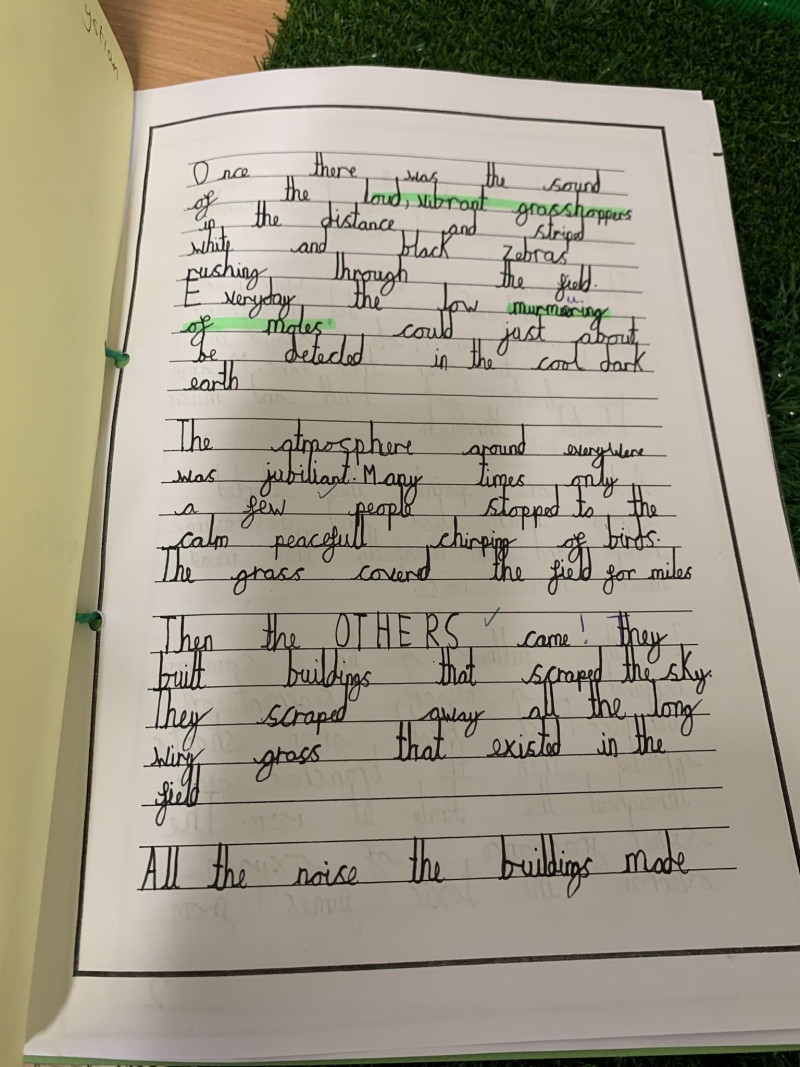 ystian
Once there was the sound
of the loud, vibrant grasshoppers
in the distance and striped
white and black Zebras
rushing through the field.
Everyday the low murmuring
of moles could just about
be detected in the cool dark
earth
The atmosphere around everywere
was jubiliant. Many times only
a few people stopped to the
calm peacefull chirping of birds.
The grass coverd the field for miles
Then the OTHERS came! They
built buildings that scraped the sky.
They scraped away all the long
wiry grass that existed in the
field
All the noise the buildings made